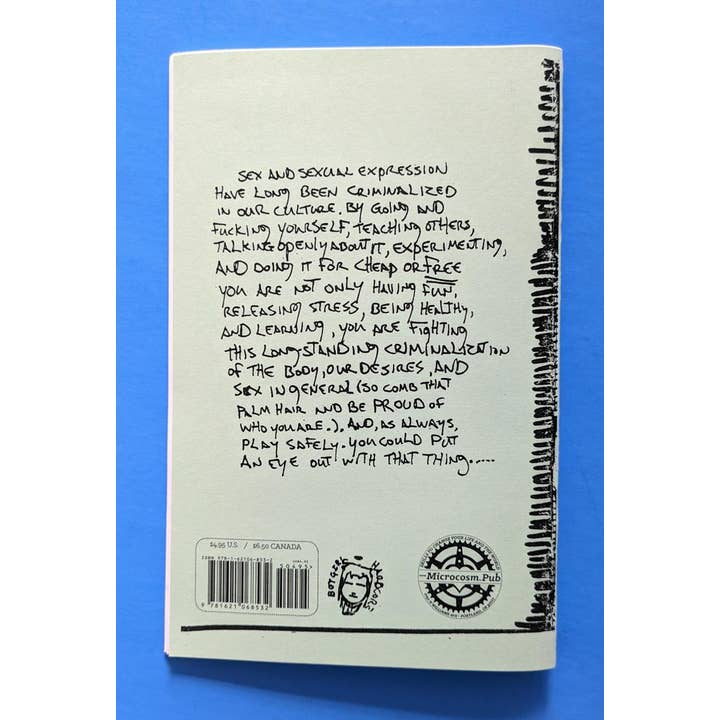 SEX AND SEXUAL EXPRESSION
HAVE LONG BEEN CRIMINALIZED
IN OUR CULTURE. BY GOING AND
FUCKING YOURSELF, TEACHING OTHERS,
TALKING OPENLY ABOUT IT, EXPERIMENTING,
AND DOING IT FOR CHEAP OR FREE
YOU ARE NOT ONLY HAVING FUN,
RELEASING STRESS, BEING HEALTHY,
AND LEARNING, YOU ARE FIGHTING
THIS LONG-STANDING CRIMINALIZATION
OF THE BODY, OUR DESIRES, AND
SEX IN GENERAL (SO COMB THAT
PALM HAIR AND BE PROUD OF
WHO YOU ARE.). AND, AS ALWAYS,
PLAY SAFELY. YOU COULD PUT
AN EYE OUT WITH THAT THING.....
$4.95 U.S. / $6.50 CANADA
ISBN 978-1-62106-853-2
50495>
9 781621 068532
Microcosm.Pub